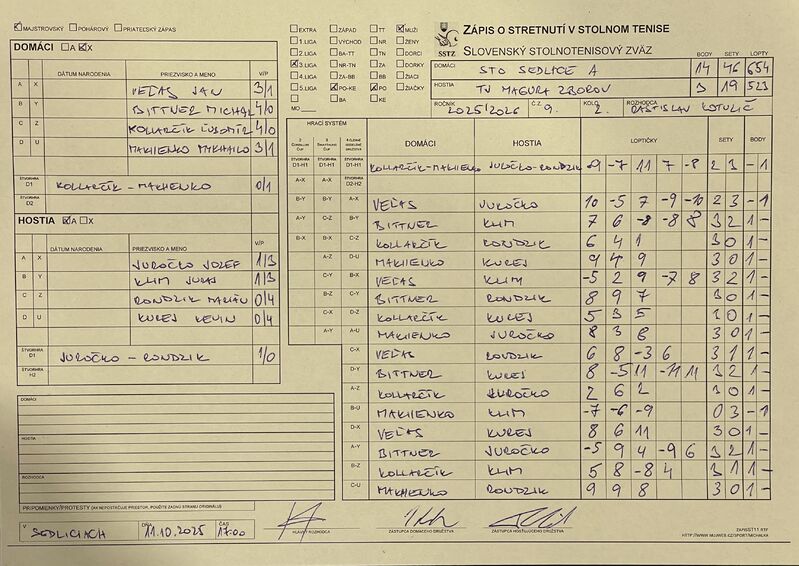 MAJSTROVSKÝ POHÁROVÝ PRIATEĽSKÝ ZÁPAS
ZÁPIS O STRETNUTÍ V STOLNOM TENISE
SLOVENSKÝ STOLNOTENISOVÝ ZVÄZ
SSTZ
EXTRA ZÁPAD BA-TT MUŽI
1.LIGA VÝCHOD NR ŽENY
2.LIGA STRED TN DORCI
3.LIGA NR-TN ZA DORKY
4.LIGA ZA-BB BB ŽIACI
5.LIGA PO-KE PO ŽIAČKY
MO BA KE
BODY SETY LOPTY
DOMÁCI STO SEDLICE A 14 46 654
HOSTIA TJ MAGURA ZBOROV 3 19 523
ROČNÍK 2025/2026 Č.Z. 9. KOLO 2. ROZHODCA RASTISLAV KOTULIČ
DOMÁCI A X
DÁTUM NARODENIA PRIEZVISKO A MENO V/P
A X VEĽAS JAN 3/1
B Y BITTNER MICHAL 4/0
C Z KOLLARČÍK ĽUBOMÍR 4/0
D U MAKHENKO MYKHAILO 3/1
ŠTVORHRA D1 KOLLARČÍK - MAKHENKO 0/1
ŠTVORHRA D2
HOSTIA A X
DÁTUM NARODENIA PRIEZVISKO A MENO V/P
A X JUROČKO JOZEF 1/3
B Y KLIM JURAJ 1/3
C Z RONDZIK MARIÁN 0/4
D U KUREJ KEVIN 0/4
ŠTVORHRA D1 JUROČKO - RONDZIK 1/0
ŠTVORHRA H2
HRACÍ SYSTÉM
DOMÁCI HOSTIA LOPTIČKY SETY BODY
D1-H1 D1-H1 D1-H1 KOLLARČÍK-MAKHENKO JUROČKO-RONDZIK 9 -7 11 7 -8 2 3 - 1
A-X A-X D2-H2
B-Y B-Y A-X VEĽAS JUROČKO 10 -5 7 -9 -10 2 3 - 1
A-Y C-Z B-Y BITTNER KLIM 7 6 -8 -8 8 3 2 1 -
B-X B-X C-Z KOLLARČÍK RONDZIK 6 4 1 3 0 1 -
A-Z D-U MAKHENKO KUREJ 9 4 9 3 0 1 -
C-Y B-X VEĽAS KLIM -5 2 9 -7 8 3 2 1 -
B-Z C-Y BITTNER RONDZIK 8 9 7 3 0 1 -
C-X D-Z KOLLARČÍK KUREJ 5 3 5 3 0 1 -
A-Y A-U MAKHENKO JUROČKO 8 3 8 3 0 1 -
C-X VEĽAS RONDZIK 6 8 -3 6 3 1 1 -
D-Y BITTNER KUREJ 8 -5 11 -11 11 3 2 1 -
A-Z KOLLARČÍK JUROČKO 2 6 2 3 0 1 -
B-U MAKHENKO KLIM -7 -6 -9 0 3 - 1
D-X VEĽAS KUREJ 8 6 11 3 0 1 -
A-Y BITTNER JUROČKO -5 9 4 -9 6 3 2 1 -
B-Z KOLLARČÍK KLIM 5 8 -8 4 3 1 1 -
C-U MAKHENKO RONDZIK 9 9 8 3 0 1 -
DOMÁCI
HOSTIA
ROZHODCA
PRIPOMIENKY/PROTESTY (AK NEPOSTAČUJE PRIESTOR, POUŽITE ZADNÚ STRANU ORIGINÁLU)
V SEDLICIACH DŇA 11.10.2025 ČAS 17:00
HLAVNÝ ROZHODCA ZÁSTUPCA DOMÁCEHO DRUŽSTVA ZÁSTUPCA HOSŤUJÚCEHO DRUŽSTVA
ZAPISST11.RTF
HTTP://WWW.MUJWEB.CZ/SPORT/MICHALKA